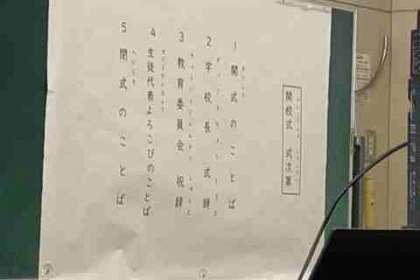 開校式 式次第
1 開式のことば
2 学校長 式辞
3 教育委員会 祝辞
4 生徒代表よろこびのことば
5 閉式のことば